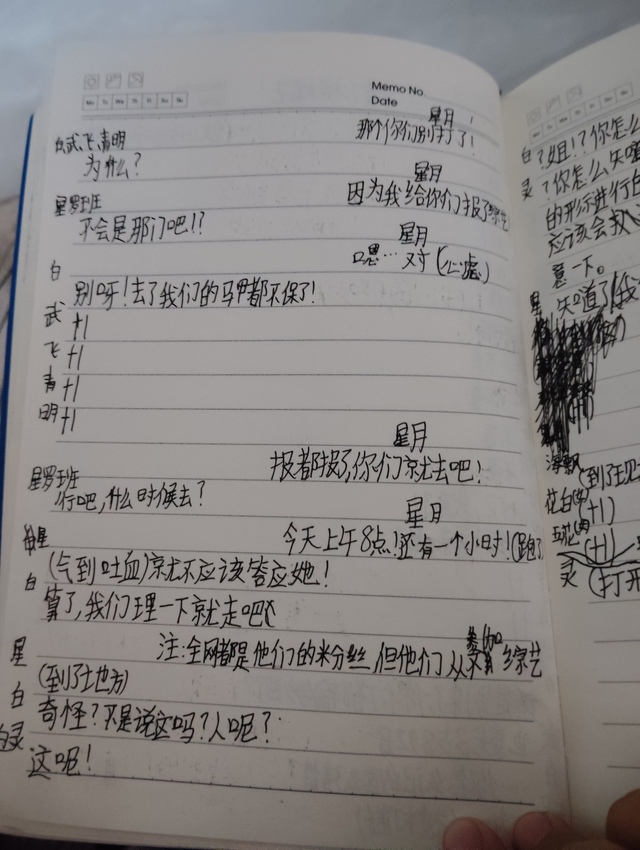 Memo No
Date
Mo Tu We Th Fr Sa Su
星月
那个你们别打了!
白武、飞、青明
为什么?
星月
因为我给你们报了综艺
星罗班
不会是那门吧!?
星月
嗯…对(心虚)
白
别呀!去了我们的马甲都不保了!
武 +1
飞 +1
青 +1
明 +1
星月
报都报了,你们就去吧!
星罗班
行吧,什么时候去?
星月
今天上午8点!还有一个小时!(跑了
星
(气到吐血)就不应该答应她!
白
算了,我们理一下就走吧
注:全网都是他们的粉丝,但他们从不参加综艺
星
(到了地方)
白
奇怪?不是说这吗?人呢?
灵
这呢!
白?姐!?你怎么
灵?你怎么
的形
应该会
意一下。
星
知道了
(到了
花白
(+1)
(+1)
灵
(打开